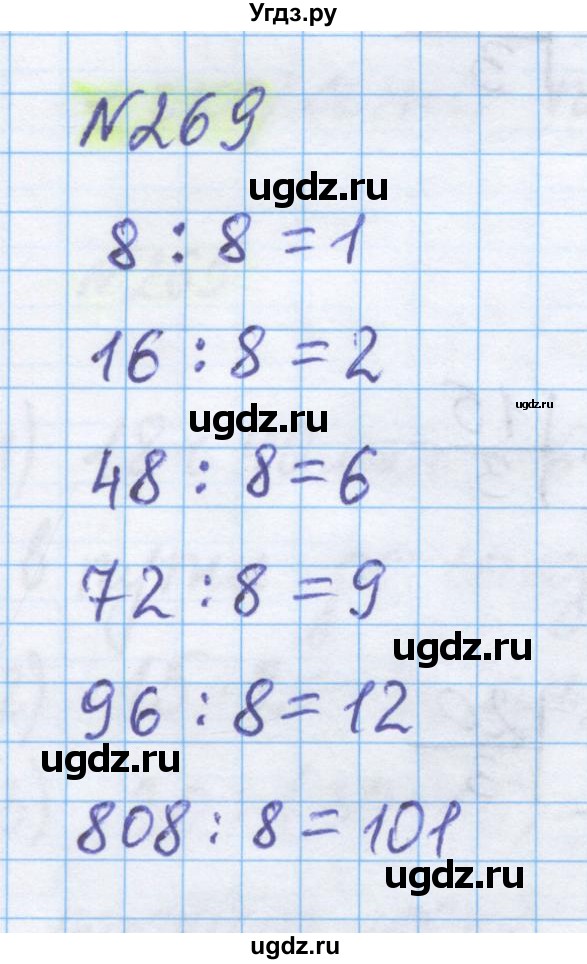 Угдз.ру
№269
ugdz.ru
8 : 8 = 1
16 : 8 = 2
ugdz.ru
ugdz.ru
48 : 8 = 6
72 : 8 = 9
ugdz.ru
96 : 8 = 12
ugdz.ru
808 : 8 = 101
ugdz.ru
ugdz.ru